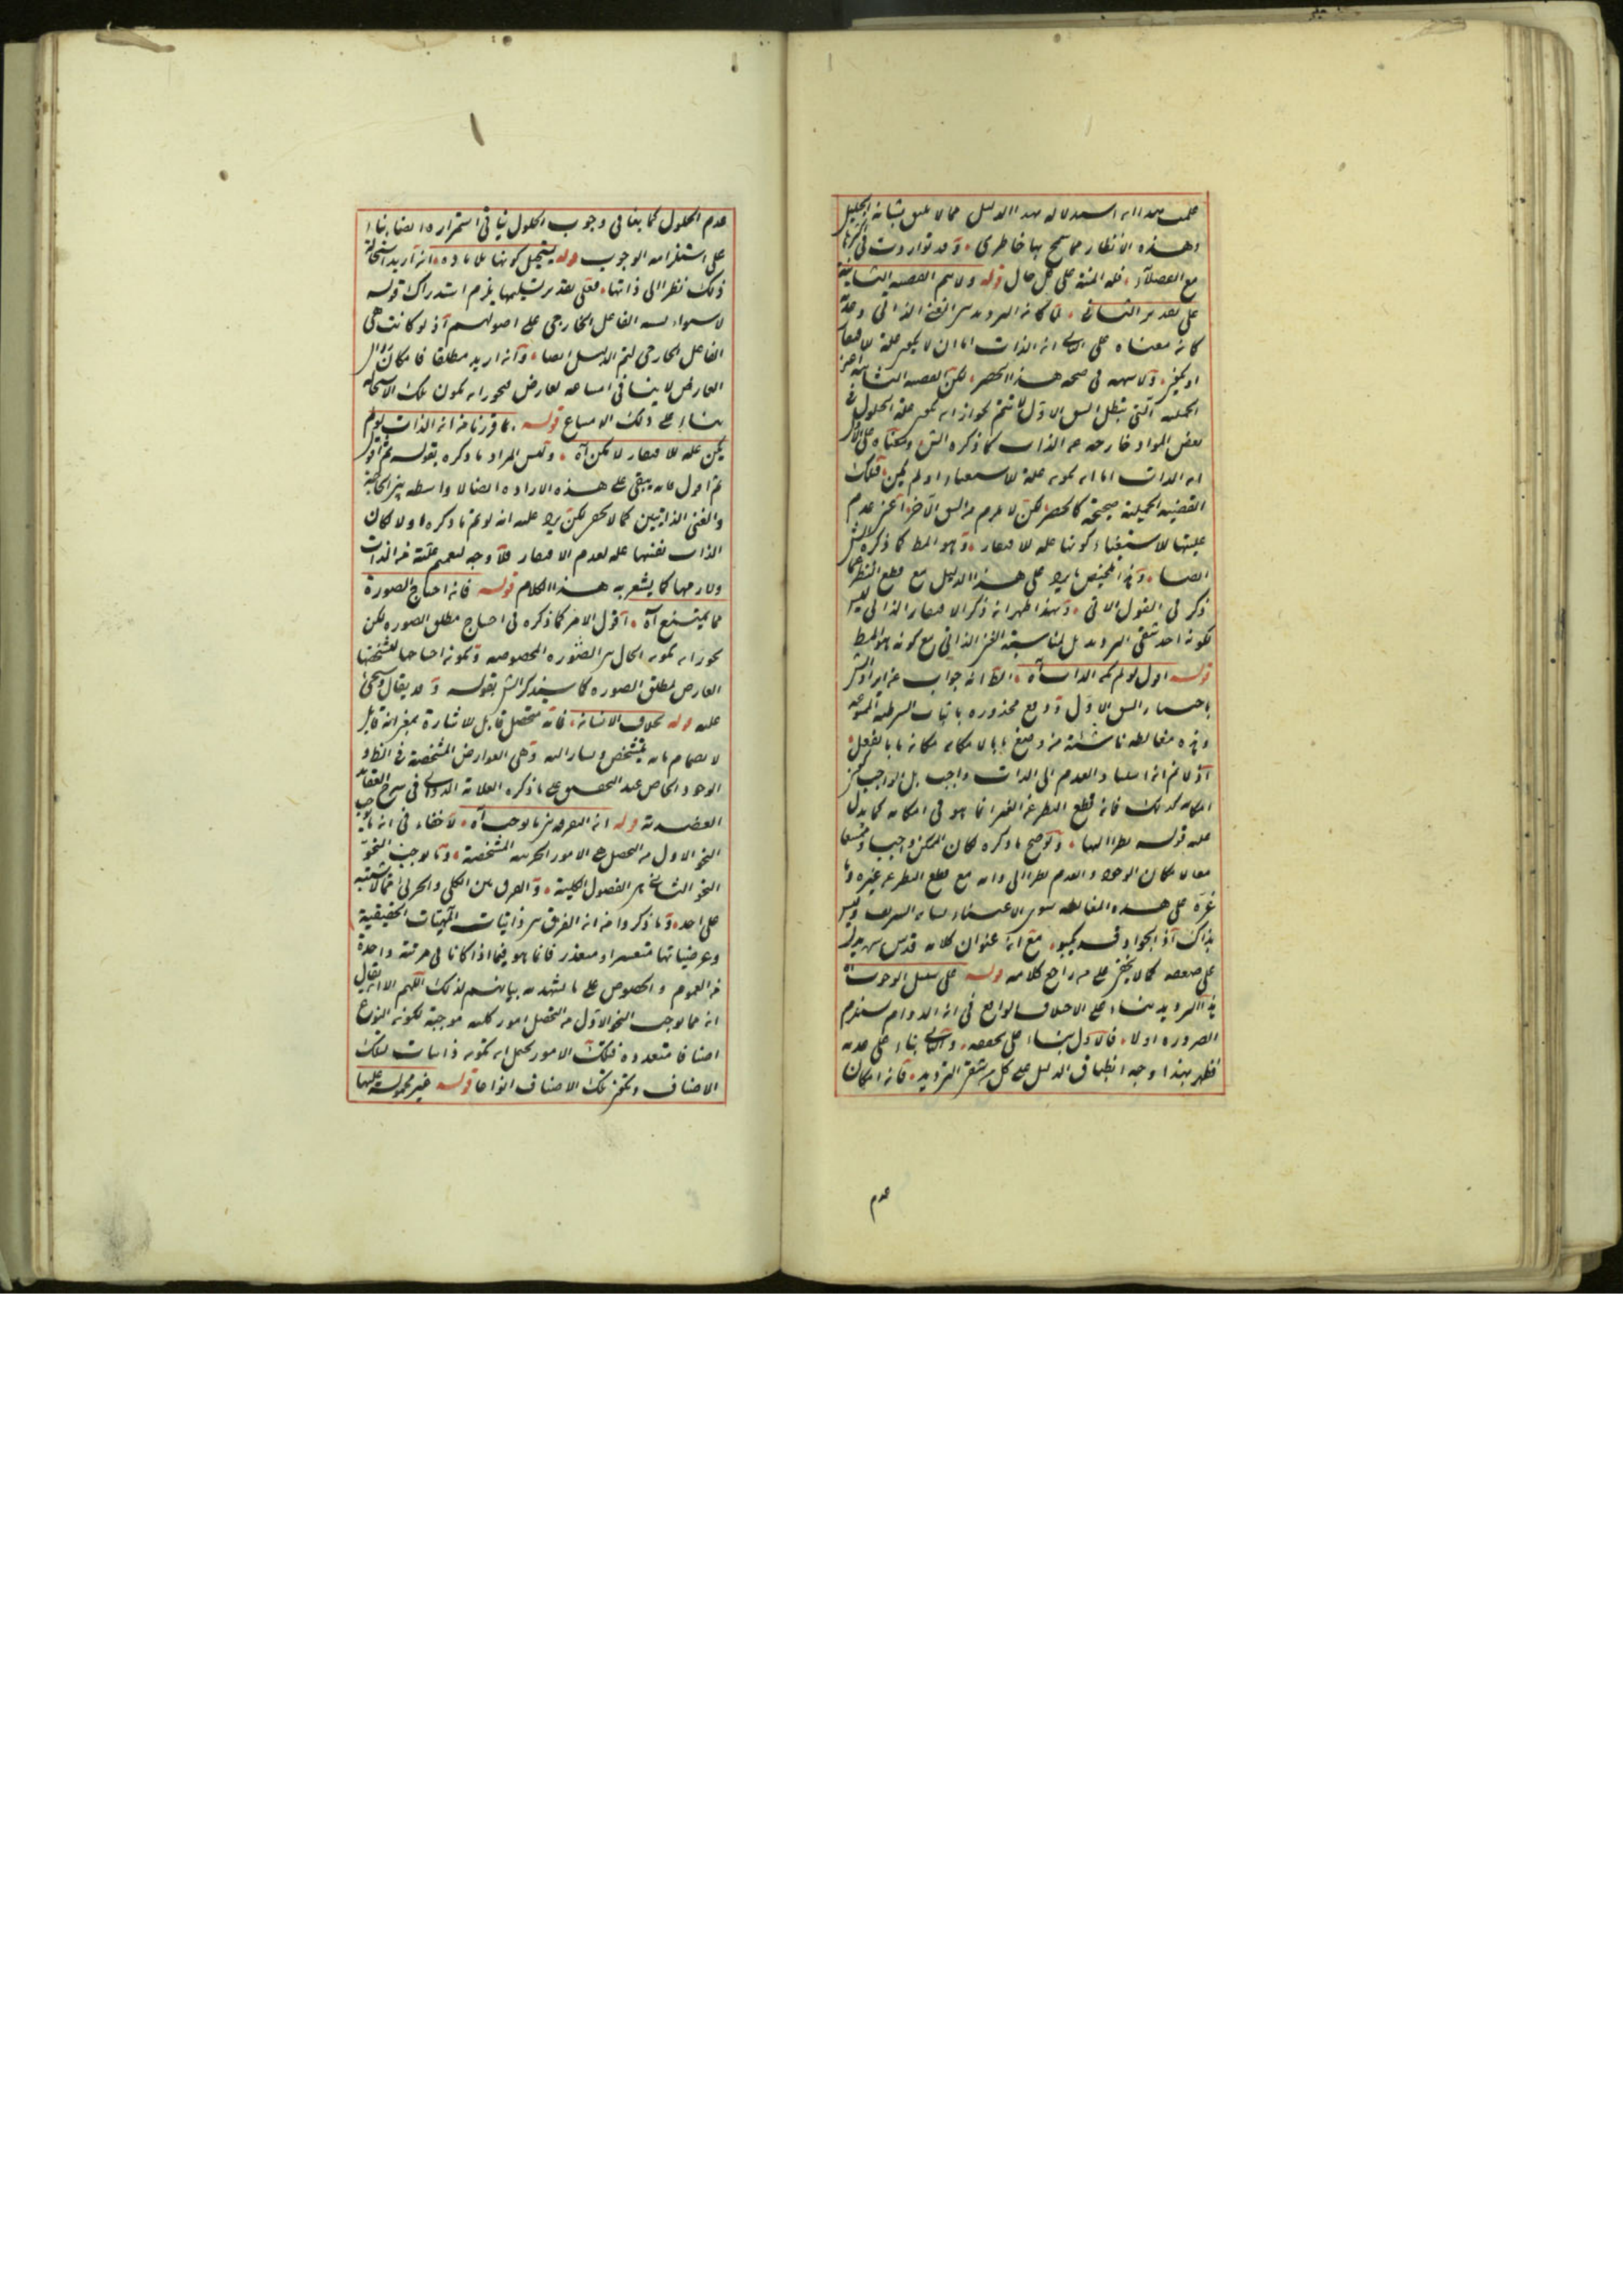 وهذه الانظار مما سمح بها خاطرى وقد تواردت فى
مع الفضلاء فله المنة على كل حال قوله ولا يتم القضية الثانية
على تقدير الثانى
كان معناه على ان الذات اما ان لا يكون علة
فى صحة هذا الحصر لكن القضية
التى تبطل الشق الاول لا تتم لجواز ان يكون علة الحلول
بعض المواد خارجة عن الذات كما ذكره الش
ان الذات اما ان يكون علة للاستغناء او لم يكن فتلك
القضية الحملية صحيحة كالحصر لكن لا يلزم من الشق الآخر عدم
عليتها للاستغناء كونها علة للافتقار وهو المط كما ذكره الش
ايضا على هذا الدليل مع قطع النظر عما
ذكر فى القول الاتى وبهذا ظهر ان ذكر الافتقار الذاتى ليس
لكونه احد شقى الترديد بل لمناسبة الغنى الذاتى مع كونه هو المط
قوله اقول لو لم يكن الذات آه الظ انه جواب عن ايراد الش
باختيار الشق الاول ودفع محذوره باثبات الشرطية الممنوعة
وهذه مغالطة ناشئة من وضع ما بالامكان مكان ما بالفعل
اذ لا نم ان استناد العدم الى الذات واجب بل الواجب
امكانه كذلك فان قطع النظر عن الغير انما هو فى امكانه كما يدل
عليه قوله نظرا اليها ولو صح ما ذكره لكان الممكن واجبا وممتنعا
معا لامكان الوجود والعدم نظرا الى ذاته مع قطع النظر عن غيره وما
غره على هذه المغالطة سوى الاعتناء بشان الشريف وليس
بذاك اذ الجواد قد يكبو مع ان عنوان كلامه قدس سره يدل
على ضعفه كما لا يخفى على من راجع كلامه قوله على سبيل الوجوب آه
هذا الترديد بناء على الاختلاف الواقع فى ان الدوام يستلزم
الضرورة اولا فالاول بناء على تحققه والثانى بناء على عدمه
فظهر بهذا وجه انطباق الدليل على كل من شقى الترديد فان امكان
عدم
عدم الحلول كما ينافى وجوب الحلول ينافى استمراره ايضا بناء
على استلزامه الوجوب قوله يستحيل كونها بلا مادة ان اريد استحالة
ذلك نظرا الى ذاتها فعلى تقدير تسليمها يلزم استدراك قوله
لاستواء نسبة الفاعل الخارجى على اصولهم اذ لو كانت هى
الفاعل الخارجى لتم الدليل ايضا وان اريد مطلقا فامكان زوال
العارض لا ينافى امتناعه لعارض فيجوز ان يكون تلك الاستحالة
بناء على ذلك الامتناع قوله بما قررنا من ان الذات لو لم
يكن علة للافتقار لامكن آه وليس المراد ما ذكره بقوله ثم اقول
ثم اقول فانه يبقى على هذه الارادة ايضا لا واسطة بين الحاجة
والغنى الذاتيين كما لا يخفى لكن يرد عليه انه لو تم ما ذكره اولا لكان
الذات نفسها علة لعدم الافتقار فلا وجه لتعميم علته من الذات
ولازمها كما يشعر به هذا الكلام قوله فان احتياج الصورة
مما يمتنع آه اقول الامر كما ذكره فى احتياج مطلق الصورة لكن
يجوز ان يكون الحال من الصورة المخصوصة ويكون احتياجها لتشخصها
العارض لمطلق الصورة كما سيذكر الش بقوله وقد يقال
عليه قوله بخلاف الانسان فانه متحصل قابل للاشارة بمعنى انه قابل
لانضمام ما به يتشخص ويشار اليه وهى العوارض المشخصة فى الظ او
الوجود الخاص عند التحقيق على ما ذكره العلامة الدوانى فى شرح العقائد
العضدية قوله ان التفرقة بين ما يوجب آه لا خفاء فى ان ما يوجب
النحو الاول من التحصل هى الامور الجزئية المشخصة وما يوجب النحو
النحو الثانى من الفصول الكلية والفرق بين الكلى والجزئى مما لا يشتبه
على احد وما ذكروا من ان الفرق بين ذاتيات الماهيات الحقيقية
وعرضياتها متعسر او متعذر فانما هو فيما اذا كانا فى مرتبة واحدة
من العموم والخصوص على ما يشهد به بيانهم لذلك اللهم الا ان يقال
ان مما يوجب النحو الاول من التحصل امور كلية موجبة لكونه النوع
اصنافا متعددة فتلك الامور يحتمل ان يكون ذاتيات لتلك
الاصناف ويكون تلك الاصناف انواعا قوله غير محمولة عليها